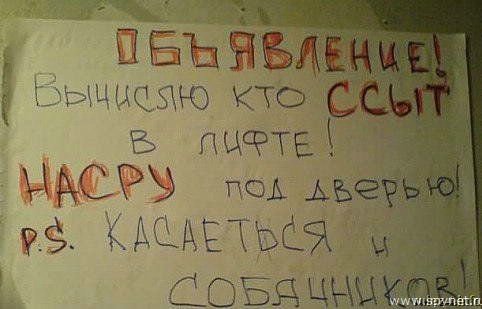 ОБЪЯВЛЕНИЕ!
ВЫЧИСЛЮ КТО ССЫТ
В ЛИФТЕ!
НАСРУ ПОД ДВЕРЬЮ!
P.S. КАСАЕТЬСЯ И
СОБАЧНИКОВ!
www.spynet.ru